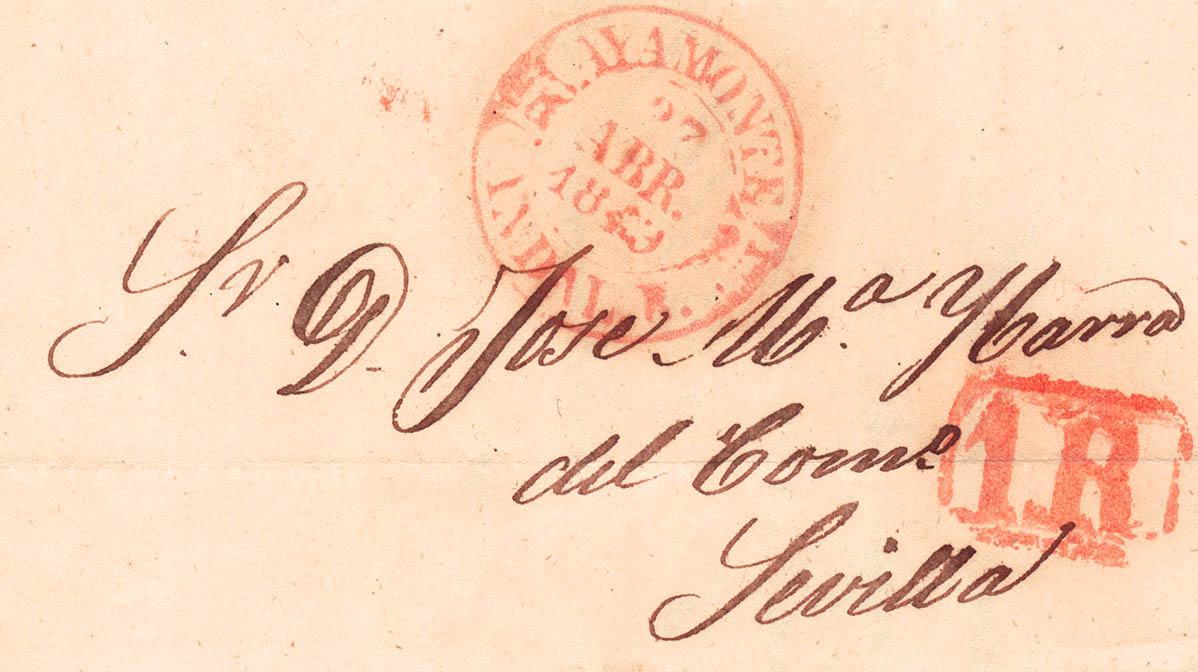 AYAMONTE
27
ABR.
1843
Sr. D. Jose M.ª Ybarra
del Com.º
1R
Sevilla